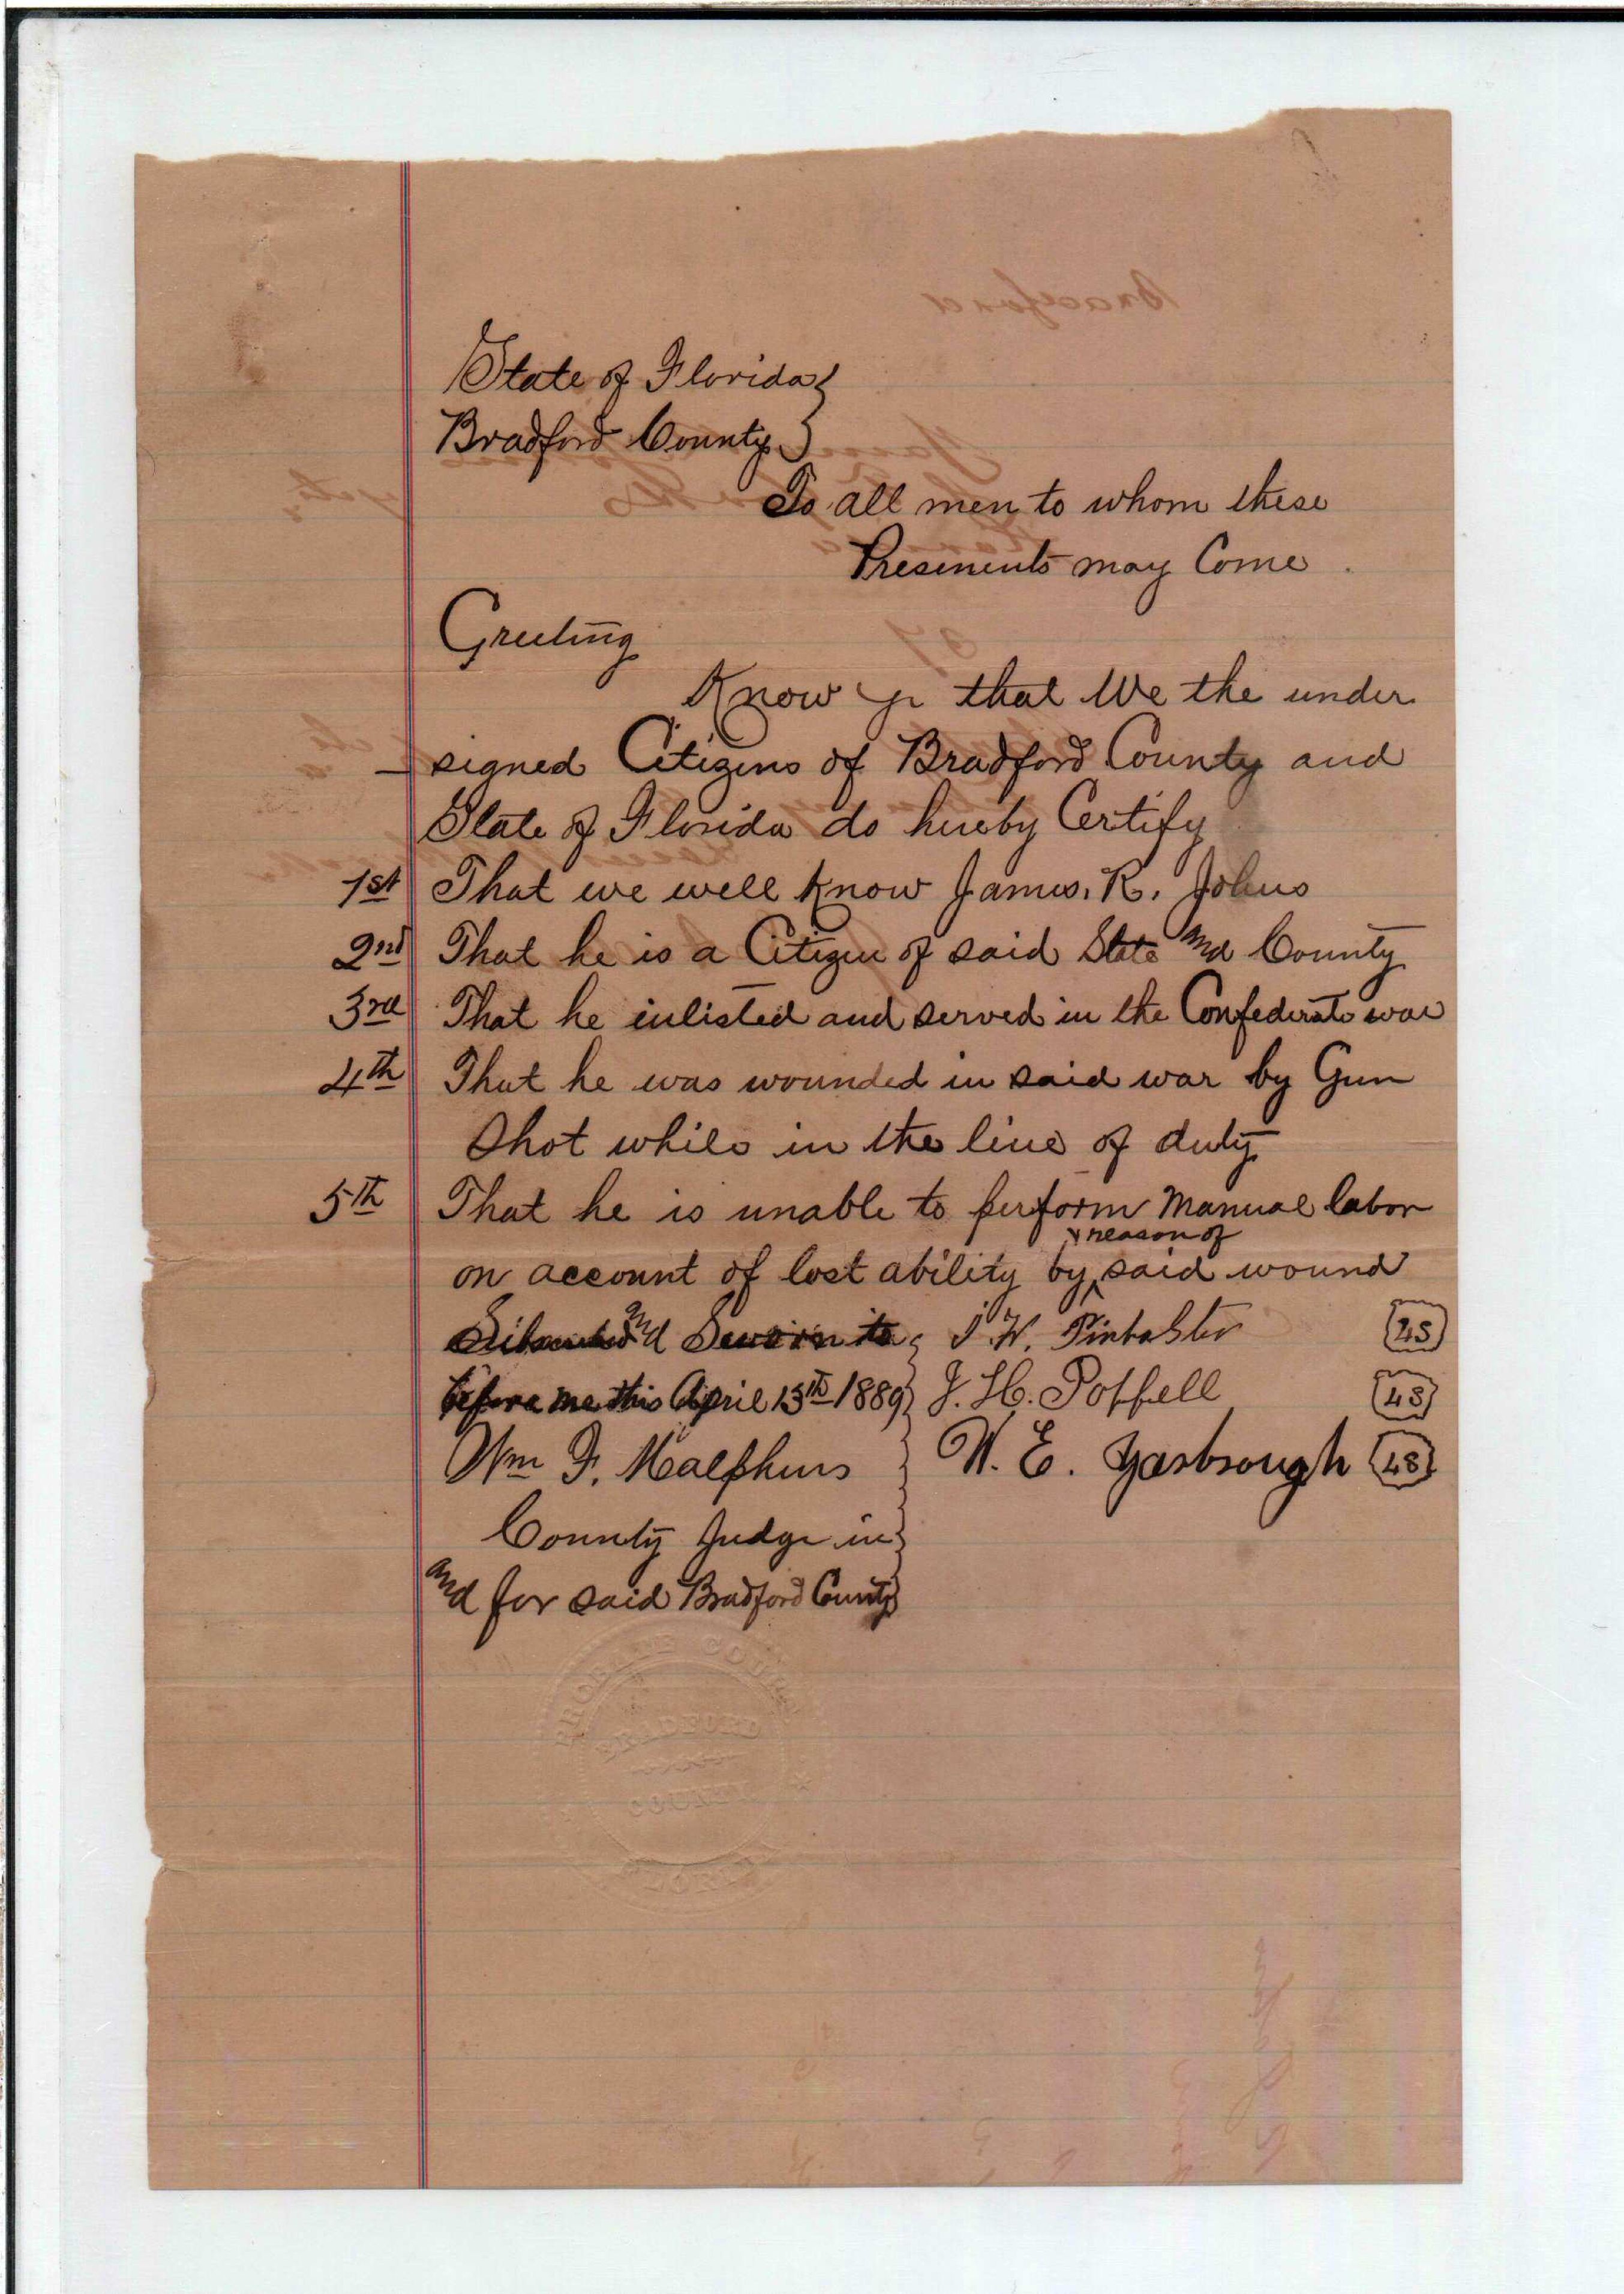 State of Florida }
Bradford County }
To all men to whom these
Presments may Come.
Greeting
Know ye that We the under
signed Citizens of Bradford County and
State of Florida do hereby Certify
1st That we well Know James. R. Johns
2nd That he is a Citizen of said State and County
3rd That he inlisted and served in the Confederate war
4th That he was wounded in said war by Gun
Shot while in the line of duty
5th That he is unable to perform Manual labor
reason of
on account of lost ability by said wound
and Sworn to J. W. LS
before me this April 13th 1889 J. H. Poppell LS
Wm F. Malphurs W. E. Yarbrough LS
County Judge in
and for said Bradford County
PROBATE COURT
BRADFORD
COUNTY
Bradford